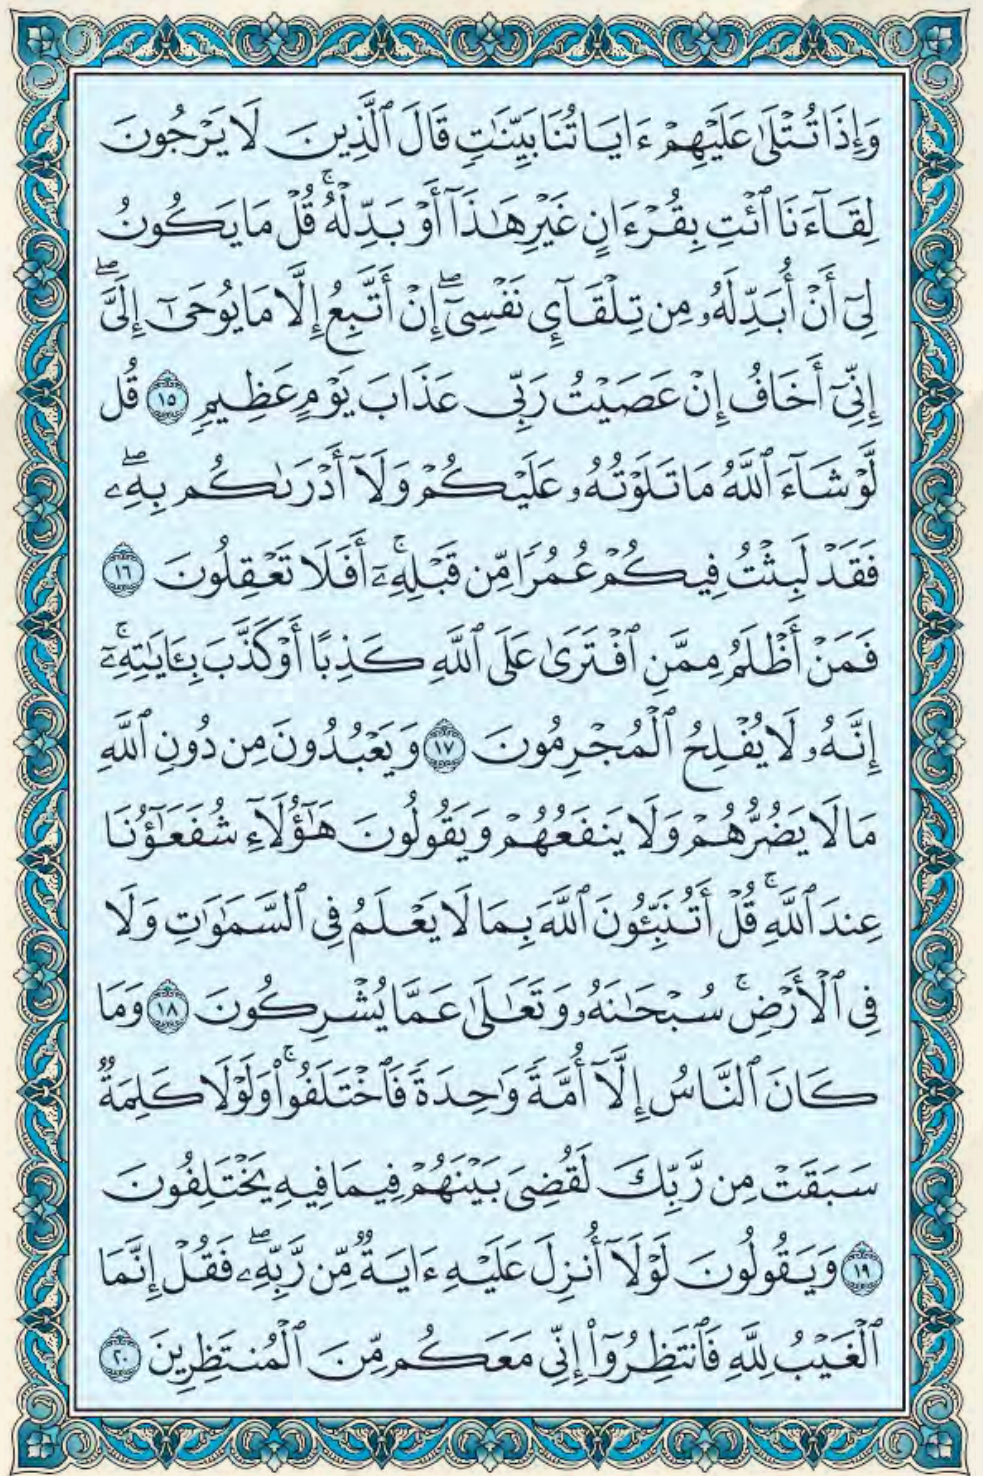 وَإِذَا تُتْلَىٰ عَلَيْهِمْ ءَايَاتُنَا بَيِّنَٰتٍ قَالَ ٱلَّذِينَ لَا يَرْجُونَ
لِقَآءَنَا ٱئْتِ بِقُرْءَانٍ غَيْرِ هَٰذَآ أَوْ بَدِّلْهُ ۚ قُلْ مَا يَكُونُ
لِىٓ أَنْ أُبَدِّلَهُۥ مِن تِلْقَآئِ نَفْسِىٓ ۖ إِنْ أَتَّبِعُ إِلَّا مَا يُوحَىٰٓ إِلَىَّ ۖ
إِنِّىٓ أَخَافُ إِنْ عَصَيْتُ رَبِّى عَذَابَ يَوْمٍ عَظِيمٍ ١٥ قُل
لَّوْ شَآءَ ٱللَّهُ مَا تَلَوْتُهُۥ عَلَيْكُمْ وَلَآ أَدْرَىٰكُم بِهِۦ ۖ
فَقَدْ لَبِثْتُ فِيكُمْ عُمُرًا مِّن قَبْلِهِۦٓ ۚ أَفَلَا تَعْقِلُونَ ١٦
فَمَنْ أَظْلَمُ مِمَّنِ ٱفْتَرَىٰ عَلَى ٱللَّهِ كَذِبًا أَوْ كَذَّبَ بِـَٔايَٰتِهِۦٓ ۚ
إِنَّهُۥ لَا يُفْلِحُ ٱلْمُجْرِمُونَ ١٧ وَيَعْبُدُونَ مِن دُونِ ٱللَّهِ
مَا لَا يَضُرُّهُمْ وَلَا يَنفَعُهُمْ وَيَقُولُونَ هَٰٓؤُلَآءِ شُفَعَٰٓؤُنَا
عِندَ ٱللَّهِ ۚ قُلْ أَتُنَبِّـُٔونَ ٱللَّهَ بِمَا لَا يَعْلَمُ فِى ٱلسَّمَٰوَٰتِ وَلَا
فِى ٱلْأَرْضِ ۚ سُبْحَٰنَهُۥ وَتَعَٰلَىٰ عَمَّا يُشْرِكُونَ ١٨ وَمَا
كَانَ ٱلنَّاسُ إِلَّآ أُمَّةً وَٰحِدَةً فَٱخْتَلَفُوا۟ ۚ وَلَوْلَا كَلِمَةٌ
سَبَقَتْ مِن رَّبِّكَ لَقُضِىَ بَيْنَهُمْ فِيمَا فِيهِ يَخْتَلِفُونَ
١٩ وَيَقُولُونَ لَوْلَآ أُنزِلَ عَلَيْهِ ءَايَةٌ مِّن رَّبِّهِۦ ۖ فَقُلْ إِنَّمَا
ٱلْغَيْبُ لِلَّهِ فَٱنتَظِرُوٓا۟ إِنِّى مَعَكُم مِّنَ ٱلْمُنتَظِرِينَ ٢٠